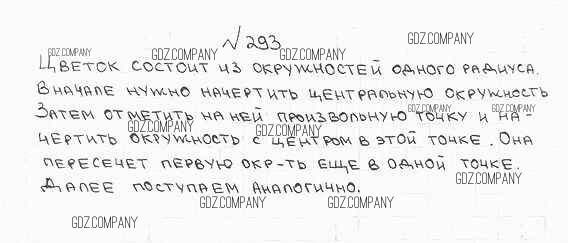 № 293
GDZ.COMPANY
GDZ.COMPANY GDZ.COMPANY GDZ.COMPANY
Цветок состоит из окружностей одного радиуса.
Вначале нужно начертить центральную окружность
GDZ.COMPANY GDZ.COMPANY
Затем отметить на ней произвольную точку и на-
GDZ.COMPANY GDZ.COMPANY
чертить окружность с центром в этой точке. Она
пересечет первую окр-ть еще в одной точке.
GDZ.COMPANY
Далее поступаем аналогично.
GDZ.COMPANY GDZ.COMPANY
GDZ.COMPANY